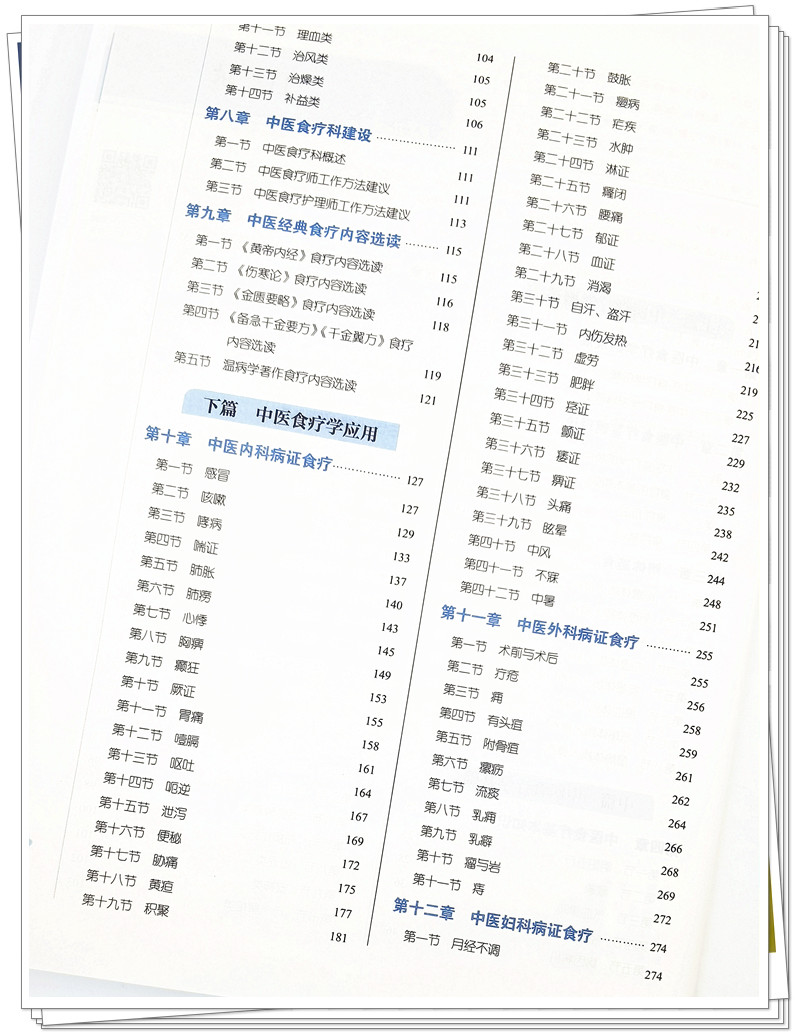 第十一节 理血类 104
第十二节 治风类 105
第十三节 治燥类 105
第十四节 补益类 106
第八章 中医食疗科建设 ………… 111
第一节 中医食疗科概述 111
第二节 中医食疗师工作方法建议 111
第三节 中医食疗护理师工作方法建议 113
第九章 中医经典食疗内容选读 …… 115
第一节 《黄帝内经》食疗内容选读 115
第二节 《伤寒论》食疗内容选读 116
第三节 《金匮要略》食疗内容选读 118
第四节 《备急千金要方》《千金翼方》食疗
内容选读 119
第五节 温病学著作食疗内容选读 121
下篇 中医食疗学应用
第十章 中医内科病证食疗 ………… 127
第一节 感冒 127
第二节 咳嗽 129
第三节 哮病 133
第四节 喘证 137
第五节 肺胀 140
第六节 肺痨 143
第七节 心悸 145
第八节 胸痹 149
第九节 癫狂 153
第十节 厥证 155
第十一节 胃痛 158
第十二节 噎膈 161
第十三节 呕吐 164
第十四节 呃逆 167
第十五节 泄泻 169
第十六节 便秘 172
第十七节 胁痛 175
第十八节 黄疸 177
第十九节 积聚 181
第二十节 鼓胀
第二十一节 瘿病
第二十二节 疟疾
第二十三节 水肿
第二十四节 淋证
第二十五节 癃闭
第二十六节 腰痛
第二十七节 郁证
第二十八节 血证
第二十九节 消渴
第三十节 自汗、盗汗
第三十一节 内伤发热 216
第三十二节 虚劳 219
第三十三节 肥胖 225
第三十四节 痉证 227
第三十五节 颤证 229
第三十六节 痿证 232
第三十七节 痹证 235
第三十八节 头痛 238
第三十九节 眩晕 242
第四十节 中风 244
第四十一节 不寐 248
第四十二节 中暑 251
第十一章 中医外科病证食疗 ……… 255
第一节 术前与术后 255
第二节 疔疮 256
第三节 痈 258
第四节 有头疽 259
第五节 附骨疽 261
第六节 瘰疬 262
第七节 流痰 264
第八节 乳痈 266
第九节 乳癖 268
第十节 瘤与岩 269
第十一节 痔 272
第十二章 中医妇科病证食疗 ……… 274
第一节 月经不调 274